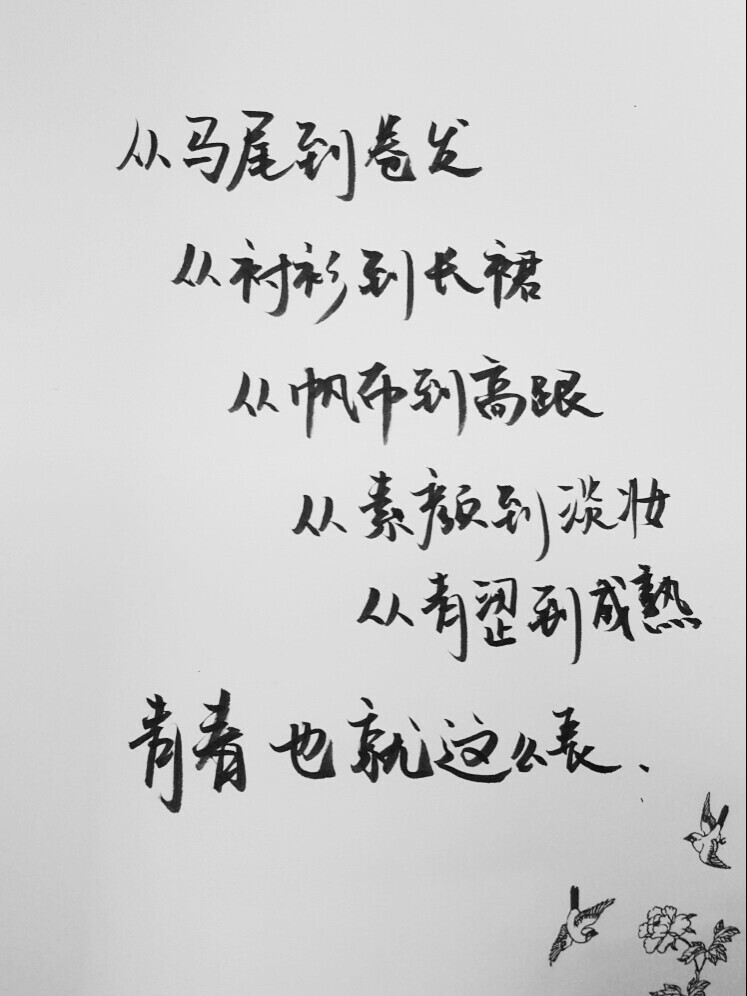 从马尾到卷发
从衬衫到长裙
从帆布到高跟
从素颜到淡妆
从青涩到成熟
青春也就这么长、